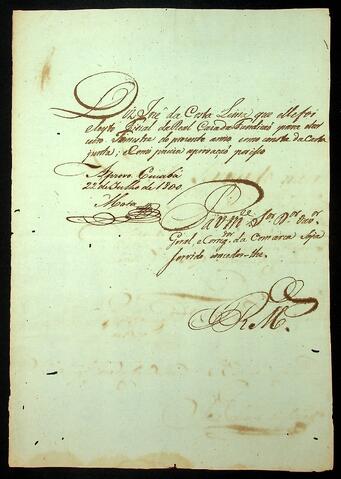 Diz José da Costa Lima que elle foi
eleyto Fiscal da Real Caza da Fundicaõ para o
Semestre do prezente anno como consta da Carta
junta; e Como preciza aprovaçaõ par isso
Aprovo. Cuiabá
22 de Julho de 1800.
P. a Vm.ce Sr. D.or Ouv.or
Geral e Correg.or da Comarca Seja
servido conceder-lhe.
E R. M.